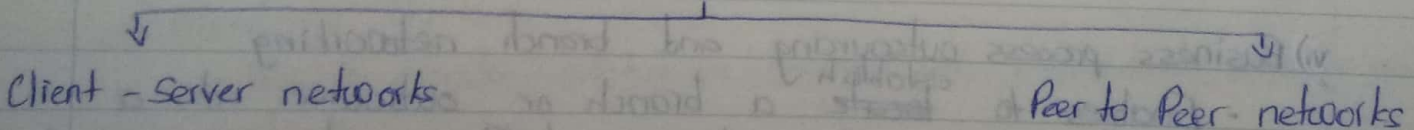 Client - Server networks
Peer to Peer networks